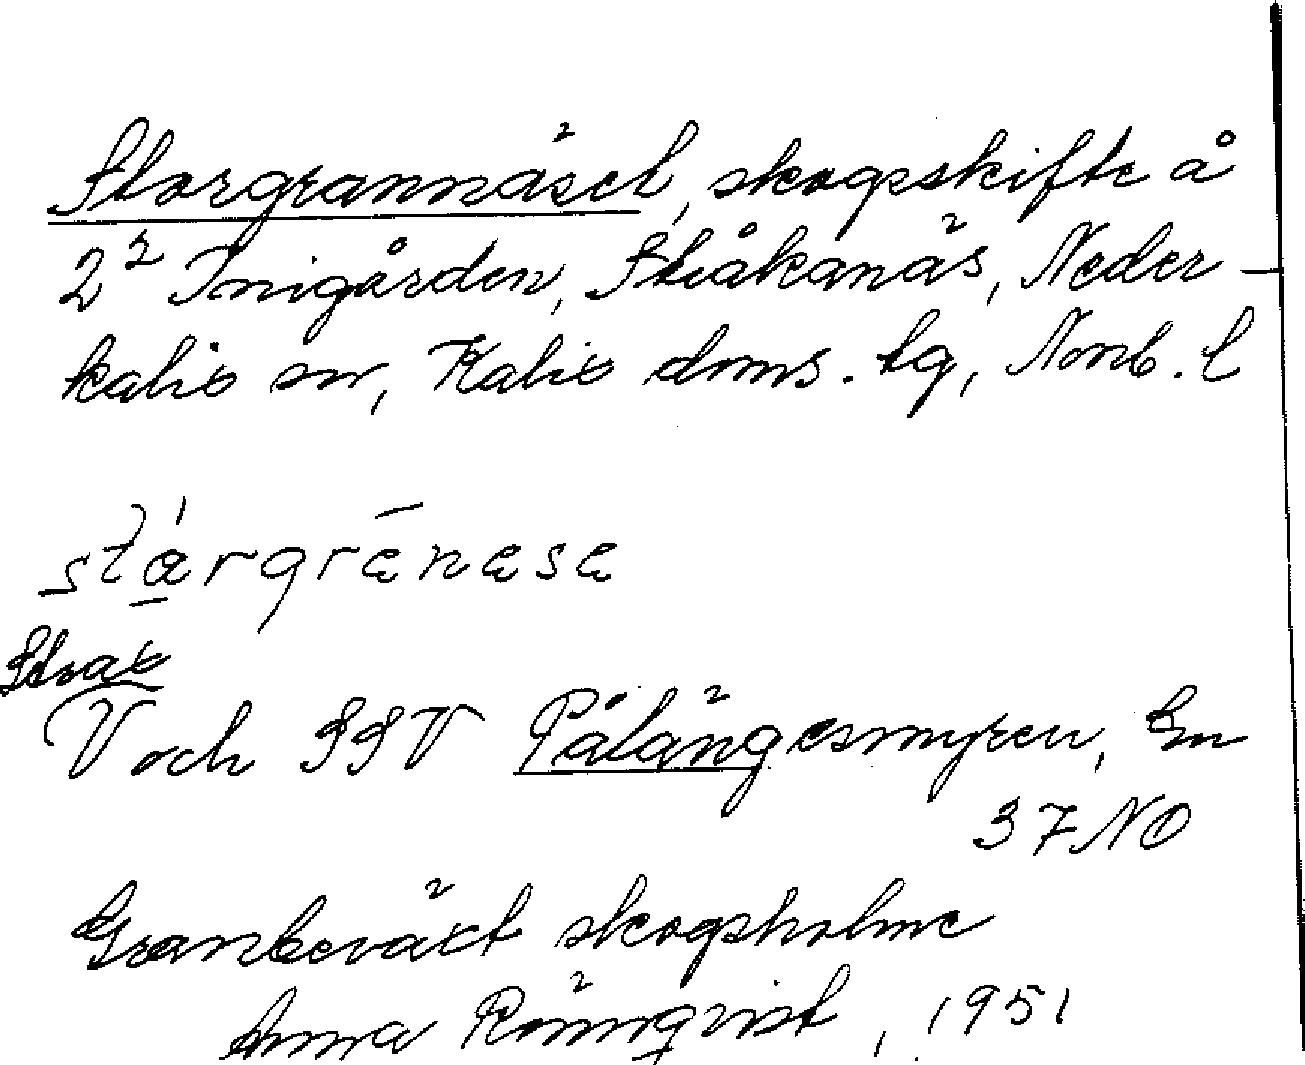 Storgrannäset, skogsskifte å
2² Inigården, Stråkanäs, Neder-
kalix sn, Kalix doms. tg, Norrb. l
stárgrānæsæ
Strax
V och SSV Pålängesmyren, Em
37 NO
Granbeväxt skogsholme
Anna Rönnqvist, 1951